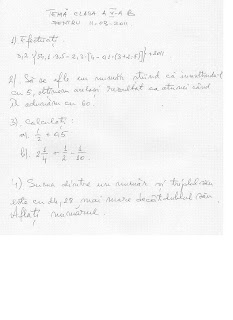 TEMĂ CLASA A V-A B
PENTRU 11-03-2011
1) Efectuați:
2). Să se afle un număr știind că înmulțindu-l
cu 5, obținem același rezultat ca atunci când
îl adunăm cu 60.
3). Calculați:
a. 1/2 + 0,5
b). 2 1/4 + 1/2 - 1/20
4) Suma dintre un număr și triplul său
este cu 24,28 mai mare decât dublul său.
Aflați numărul.